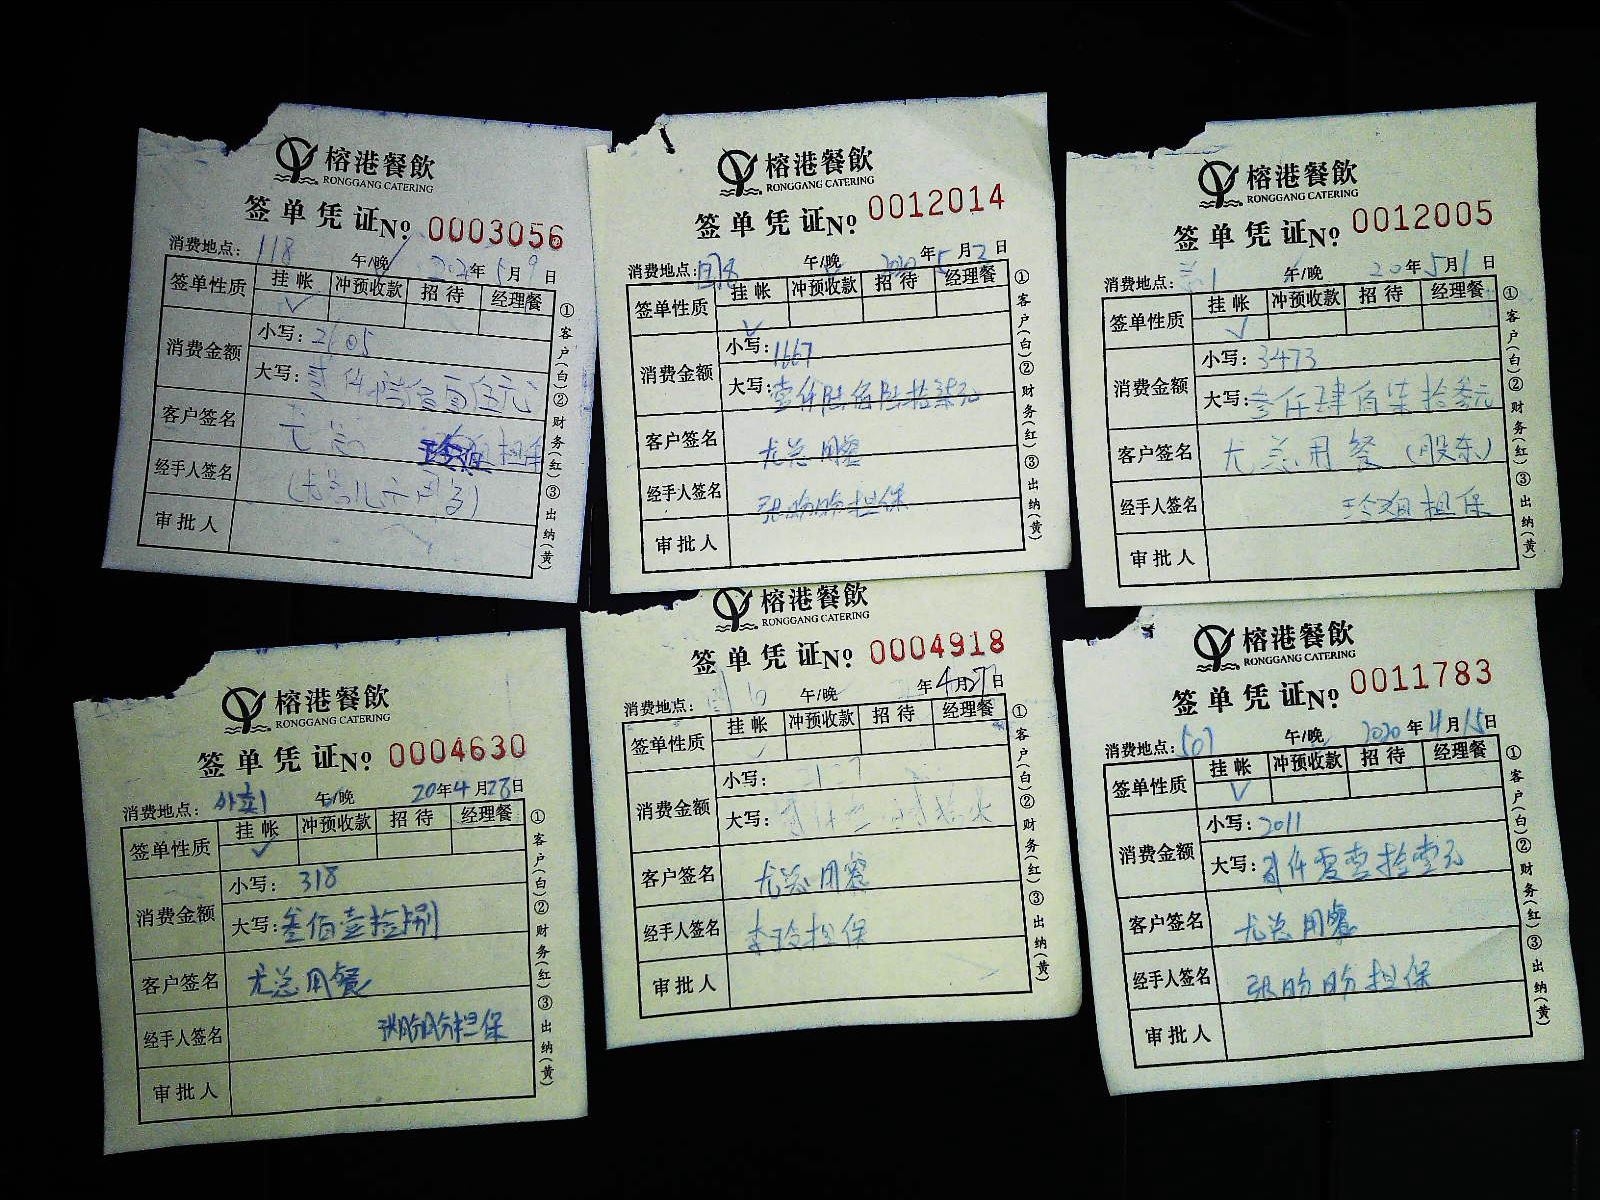 榕港餐飲
RONGGANG CATERING
签单凭证No. 0003056
消费地点: 118 午/晚 2020年5月9日
签单性质 挂帐 冲预收款 招待 经理餐
消费金额 小写: 2105
大写: 贰仟壹佰零伍元
客户签名 尤总 玲姐担保
经手人签名
审批人
①客户(白)②财务(红)③出纳(黄)
榕港餐飲
RONGGANG CATERING
签单凭证No. 0012014
消费地点: 午/晚 2020年5月2日
签单性质 挂帐 冲预收款 招待 经理餐
消费金额 小写: 1667
大写: 壹仟陆佰陆拾柒元
客户签名 尤总用餐
经手人签名 张盼盼担保
审批人
①客户(白)②财务(红)③出纳(黄)
榕港餐飲
RONGGANG CATERING
签单凭证No. 0012005
消费地点: 午/晚 20年5月1日
签单性质 挂帐 冲预收款 招待 经理餐
消费金额 小写: 3473
大写: 叁仟肆佰柒拾叁元
客户签名 尤总用餐(股东)
经手人签名 玲姐担保
审批人
①客户(白)②财务(红)③出纳(黄)
榕港餐飲
RONGGANG CATERING
签单凭证No. 0004630
消费地点: 午/晚 20年4月28日
签单性质 挂帐 冲预收款 招待 经理餐
消费金额 小写: 318
大写: 叁佰壹拾捌
客户签名 尤总用餐
经手人签名 张盼盼担保
审批人
①客户(白)②财务(红)③出纳(黄)
榕港餐飲
RONGGANG CATERING
签单凭证No. 0004918
消费地点: 午/晚 年4月27日
签单性质 挂帐 冲预收款 招待 经理餐
消费金额 小写:
大写:
客户签名 尤总用餐
经手人签名 李玲担保
审批人
①客户(白)②财务(红)③出纳(黄)
榕港餐飲
RONGGANG CATERING
签单凭证No. 0011783
消费地点: 507 午/晚 2020年4月15日
签单性质 挂帐 冲预收款 招待 经理餐
消费金额 小写: 2011
大写: 贰仟零壹拾壹元
客户签名 尤总用餐
经手人签名 张盼盼担保
审批人
①客户(白)②财务(红)③出纳(黄)